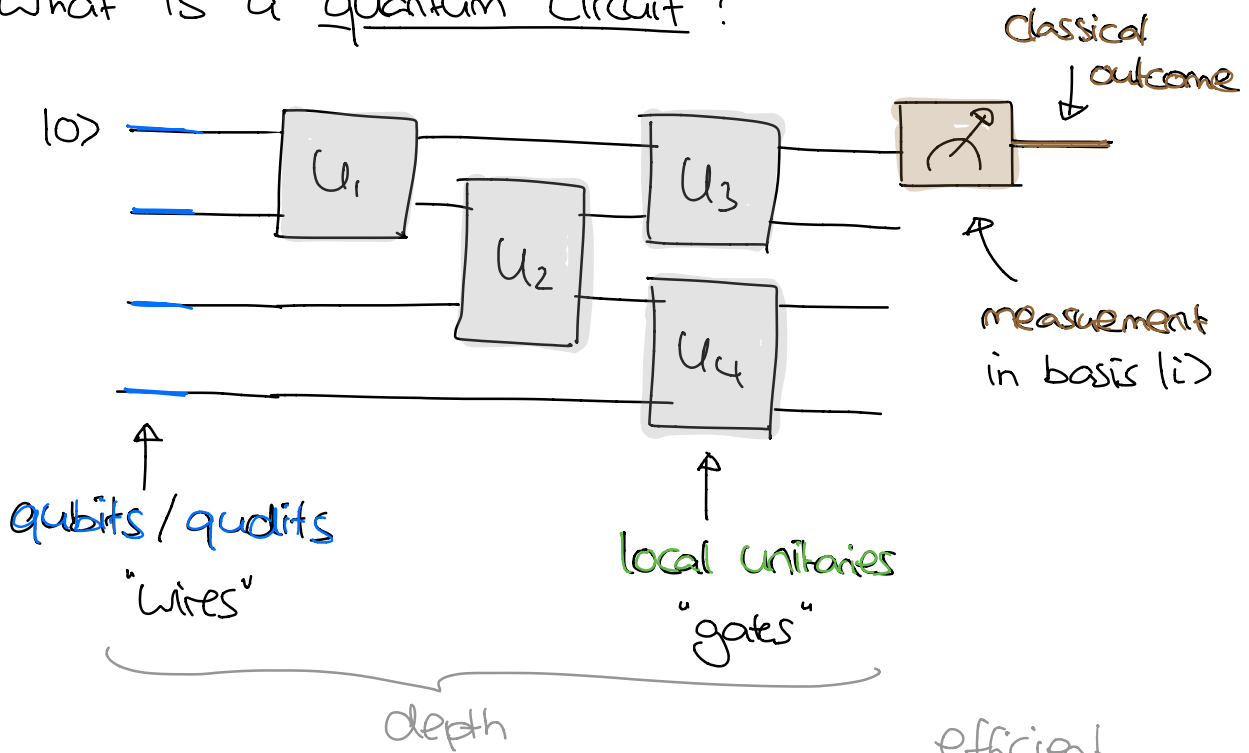 What is a quantum circuit?
classical
outcome
|0>
U1
U2
U3
U4
measuement
in basis |i>
qubits / qudits
"wires"
local unitaries
"gates"
depth
efficient